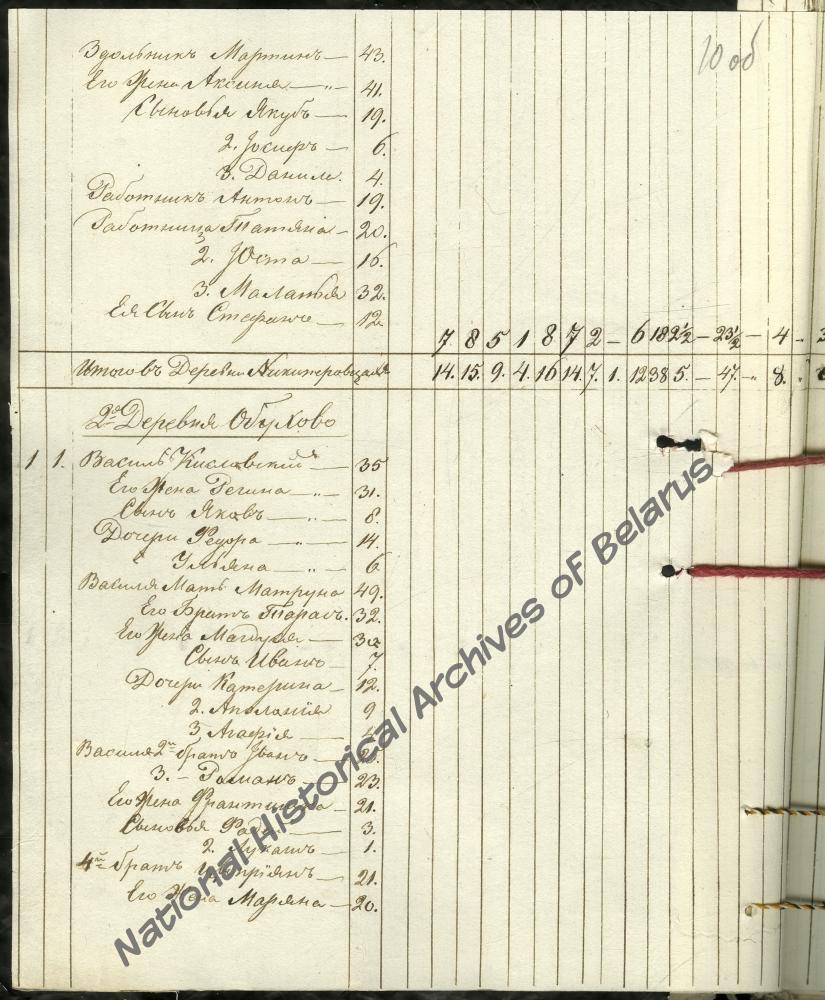 10 об
Здольникъ Мартинъ — 43.
Его Жена Аксиня — " — 41.
Сыновья Якубъ — 19.
2. Іосифъ — 6.
3. Данило. 4.
Работникъ Антонъ — 19.
Работница Татяна — 20.
2. Юста — 16.
3. Маланья 32.
Ея Сынъ Стефанъ — 12.
7 8 5 1 8 7 2 – 6 18 2 1/2 – 23 1/2 – 4 -
Итого въ Деревни 14. 15. 9. 4. 16 14. 7. 1. 12 38 5. – 47. - " 8.
2я Деревня Обухово
1 1. Василь Кисловский — 35
Его Жена Регина — " — 31.
Сынъ Яковъ — " — 8.
Дочери Федора — " — 14.
Ульяна — " — 6
Василя Мать Матруна 49.
Его Братъ Тарасъ. 32.
Его Жена Магдуся — 30
Сынъ Иванъ — 7.
Дочери Катерина — 12.
2. Аполонія 9
3. Агафія —
Василя 2й братъ Іванъ —
3. – Романъ 23.
Его Жена 21.
Сыновья 3.
2. Лукашъ — 1.
4й братъ — 21.
Его Жена Маряна — 20.
National Historical Archives of Belarus